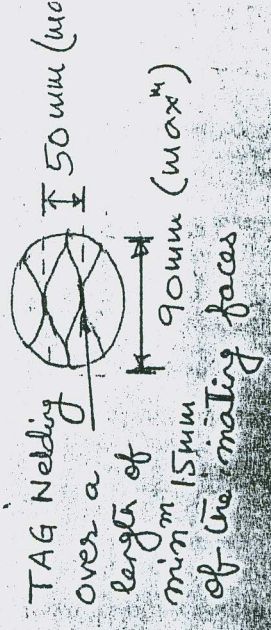 TAG Welding
over a
length of
min^m 15mm
of the mating faces
50mm (ma
90mm (max^m)